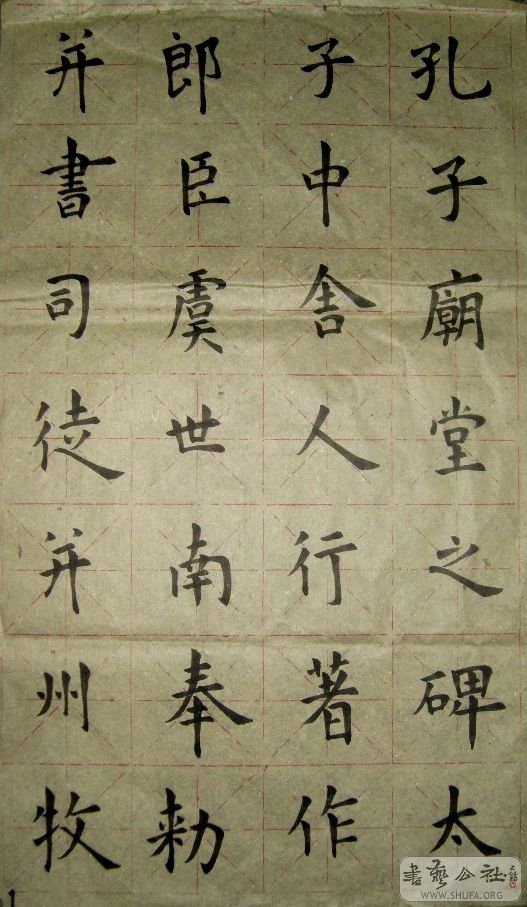 孔子廟堂之碑太
子中舎人行著作
郎臣虞世南奉勅
并書司徒并州牧
書藝公社
WWW.SHUFA.ORG
1